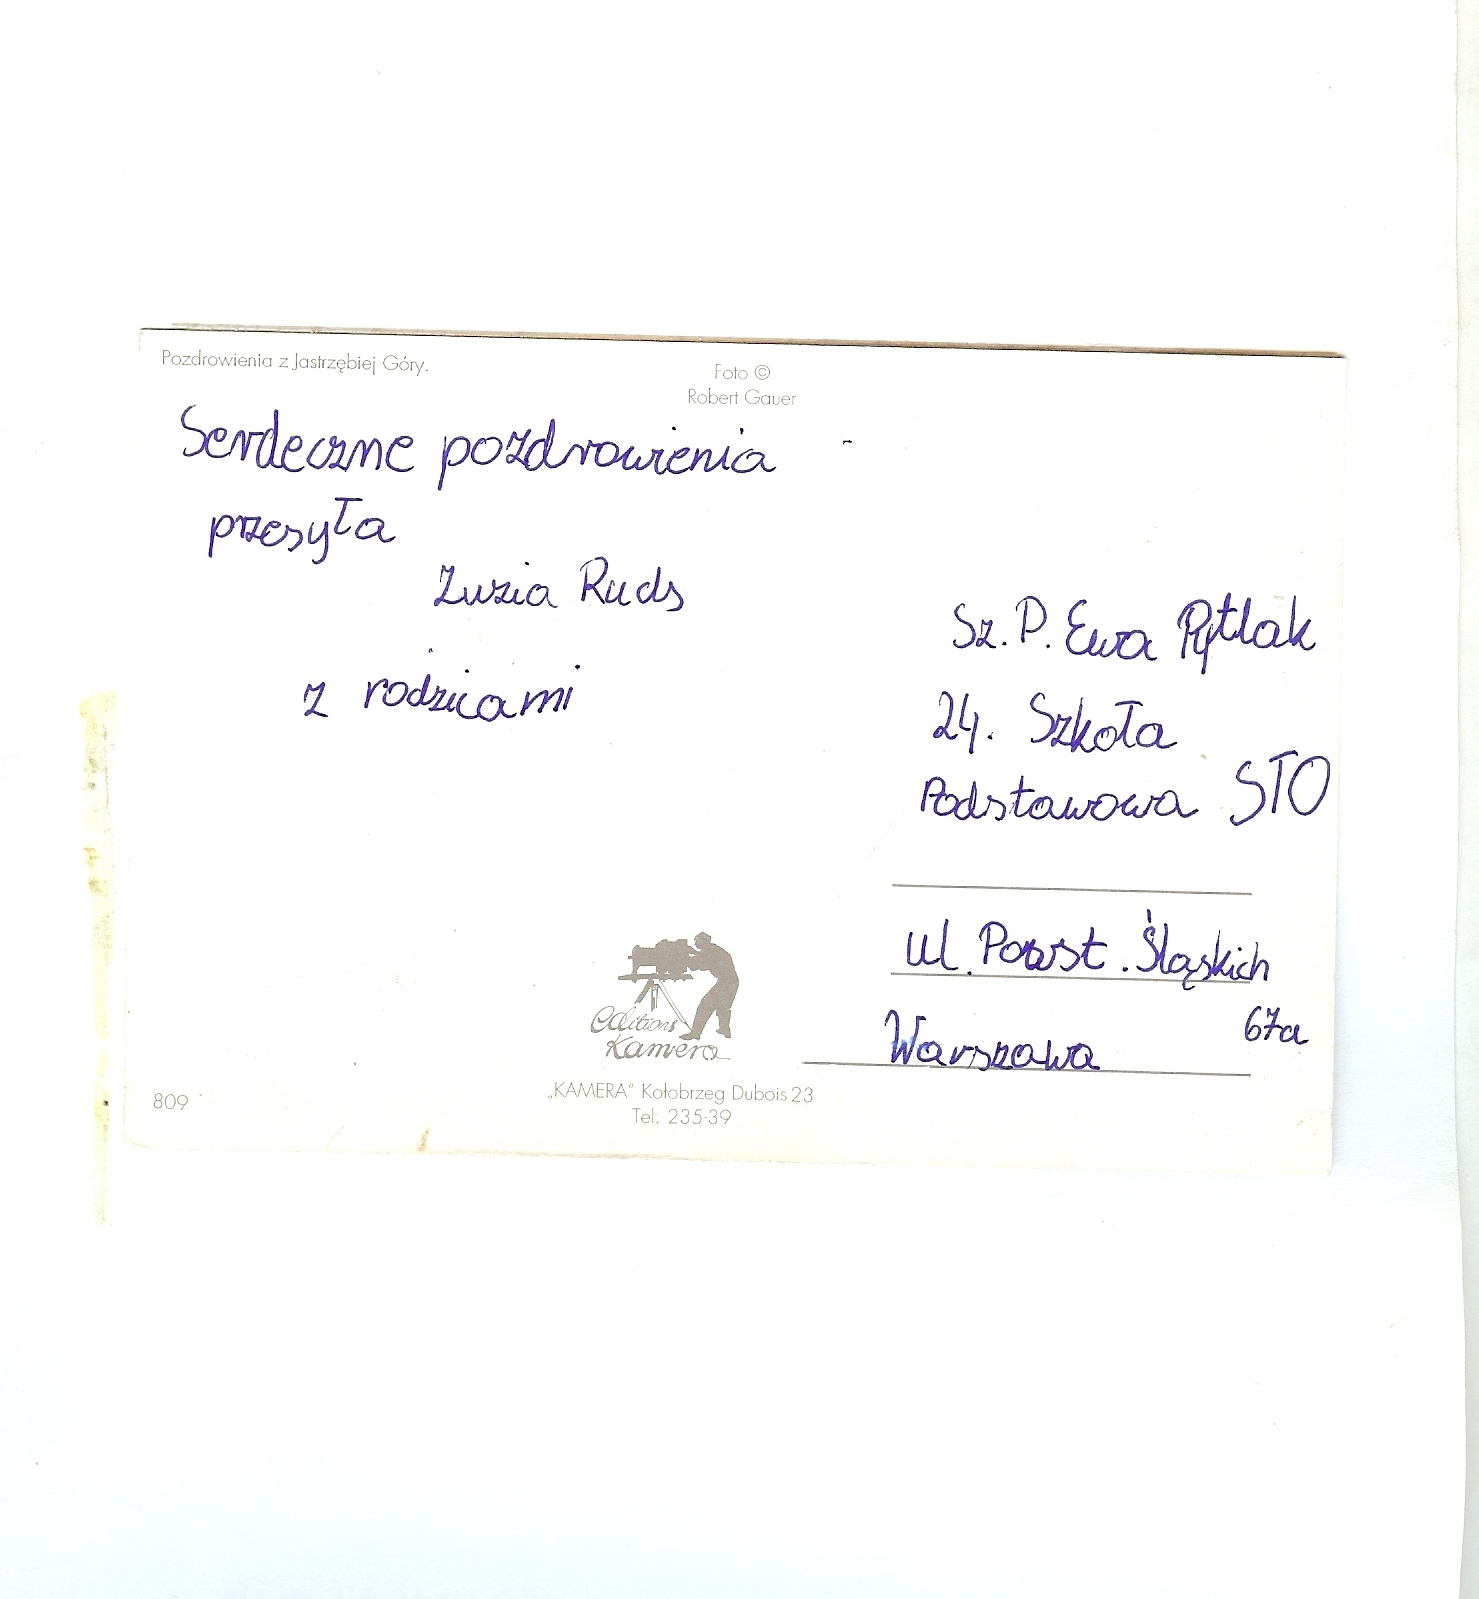 Pozdrowienia z Jastrzębiej Góry.
Foto ©
Robert Gauer
Serdeczne pozdrowienia
przesyła
Zuzia Ruds
z rodzicami
Sz. P. Ewa Pytlak
24. Szkoła
Podstawowa STO
ul. Powst. Śląskich
67a
Warszawa
editions
Kamera
„KAMERA" Kołobrzeg Dubois 23
Tel. 235-39
809